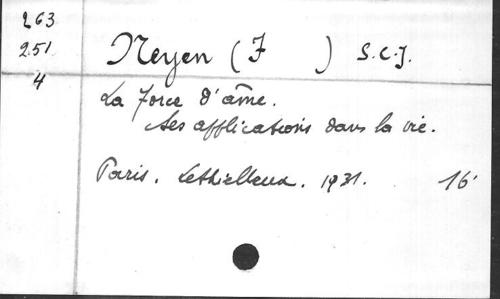 263
251
4
Neyen (J ) S.C.J.
La force d'âme.
Ses applications dans la vie.
Paris. Lethielleux. 1931. 16°